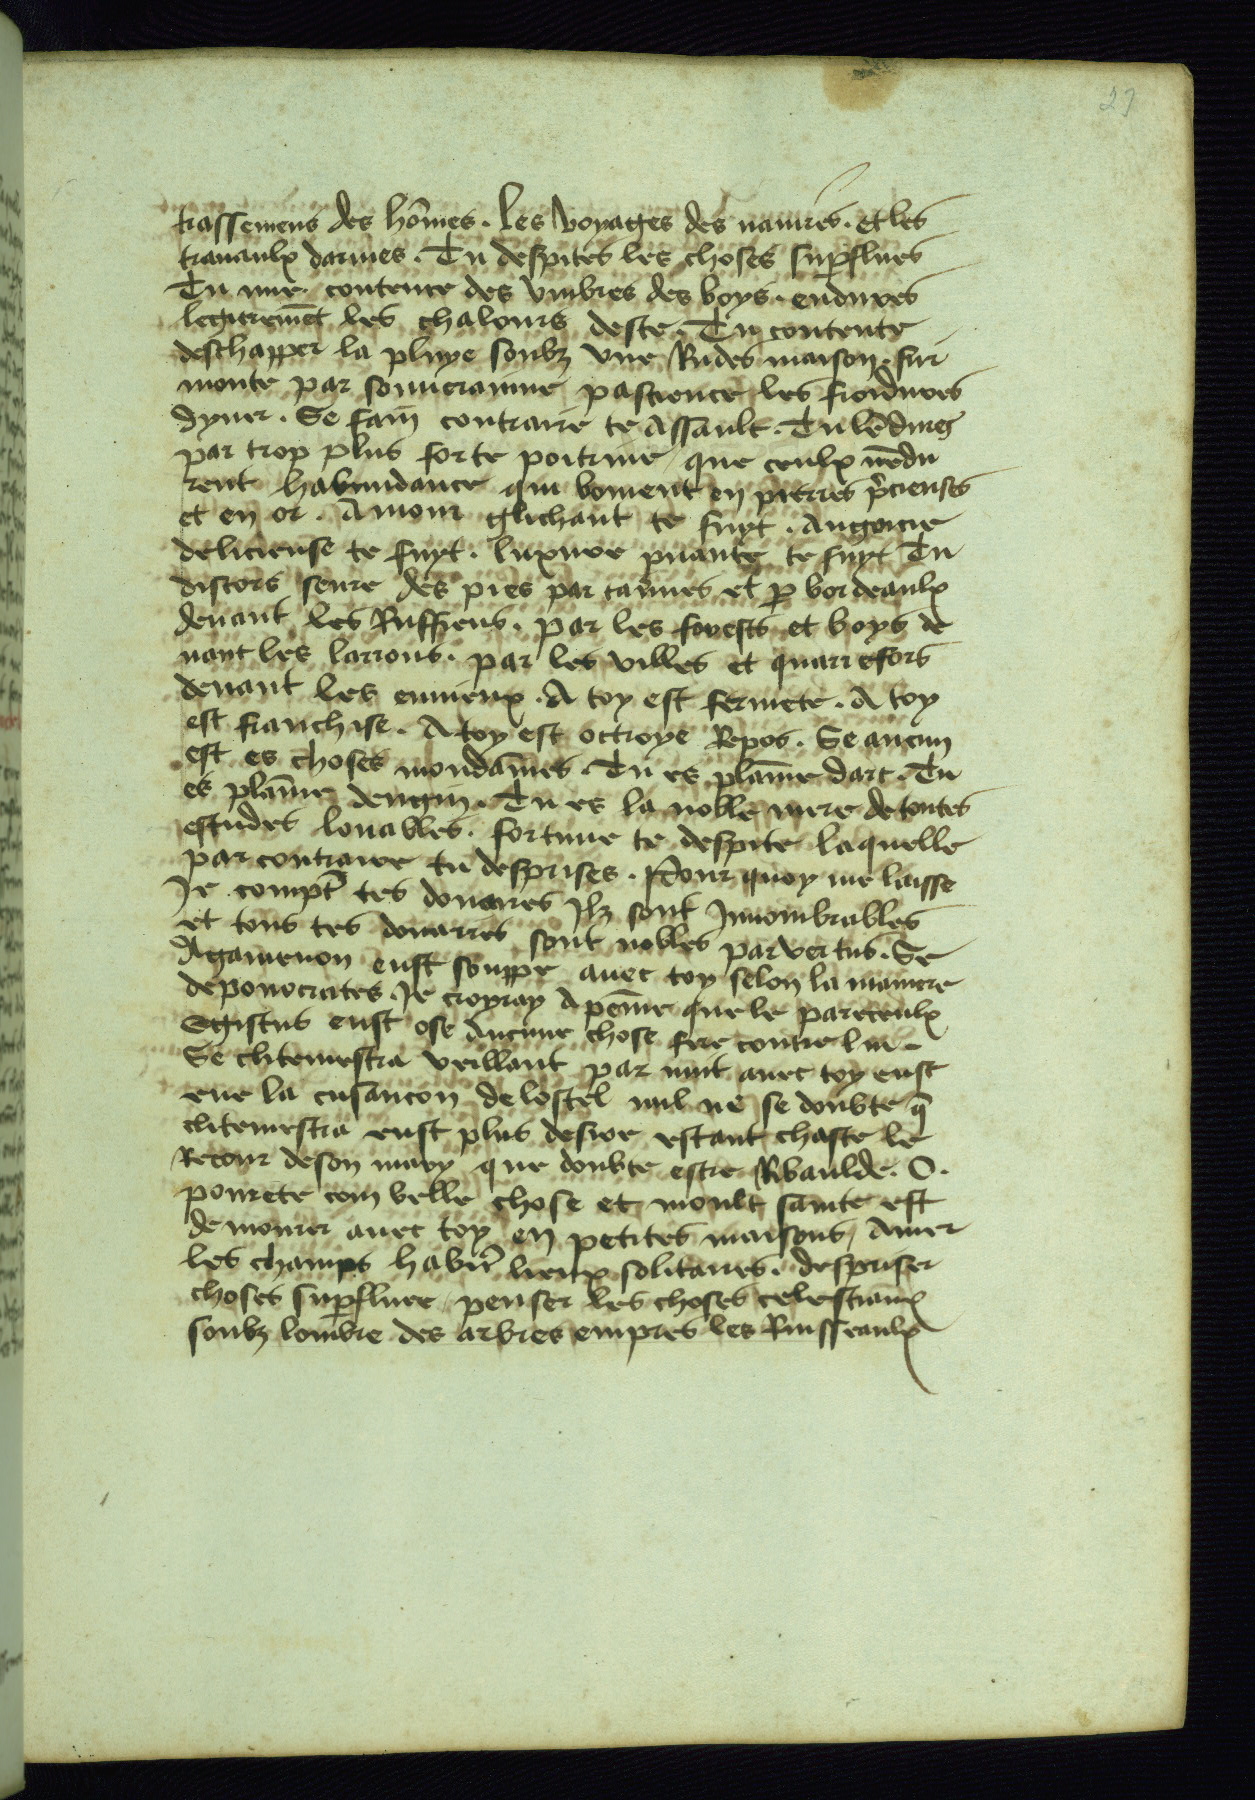 27
trassemens des hōmes. Les voyages des nauires. et les
trauaulx darmes. Tu despites les choses supflues
Tu nue. contente des vmbres des boys. endures
legieremēt les chalours deste. Tu contente
deschapper la pluye soubz vne Rudes maison. sur
monte par souueraine pascience les froidures
dyuer. Se fam̄ contraire te Assault. Tu lēdures
par trop plus forte poitrine que ceulx nēdu
rent habundance qui boment en pierres p̄cieuses
et en or. Amour glichant te fuyt. Angoicie
delicieuse te fuyt. luxure puante te fuyt Tu
discors seure des pies par tauernes et p bordeaulx
deuant les Ruffiens. par les forests et boys de
uant les larrons. par les villes et quarrefors
deuant les enuieux. A toy est fermete. A toy
est franchise. A toy est octroye Repos. Se aucun
est es choses mondaīnes. Tu es plaīne dart. Tu
es plaīne dengin. Tu es la noble mere de toutes
estudes louables. fortune te despite laquelle
par contraire tu desprises. Pour quoy me laisse
Je compt̄ tes douaires Jlz sont Jnnombrables
et tous tes douaires sont nobles par vertus. Se
Agamenon eust souppe auec toy selon la maniere
de ponocrates. Je croyray A peīne que le pareceulx
Egistus eust ose Aucune chose fere contre lui.
Se clitemestra veillant par nuit auec toy eust
eue la cusancon de lostel nul ne se doubte q̄
clitemestra eust plus desire estant chaste le
Retour de son mary que doubte estre Ribaulde. O.
pourete com belle chose et moult sainte est
de mourer auec toy en petites maisons, Amer
les champs habit̄ lieux solitaires. despriser
choses supflues penser les choses celestiaux
soubz lombre des arbres empres les Ruisseaulx